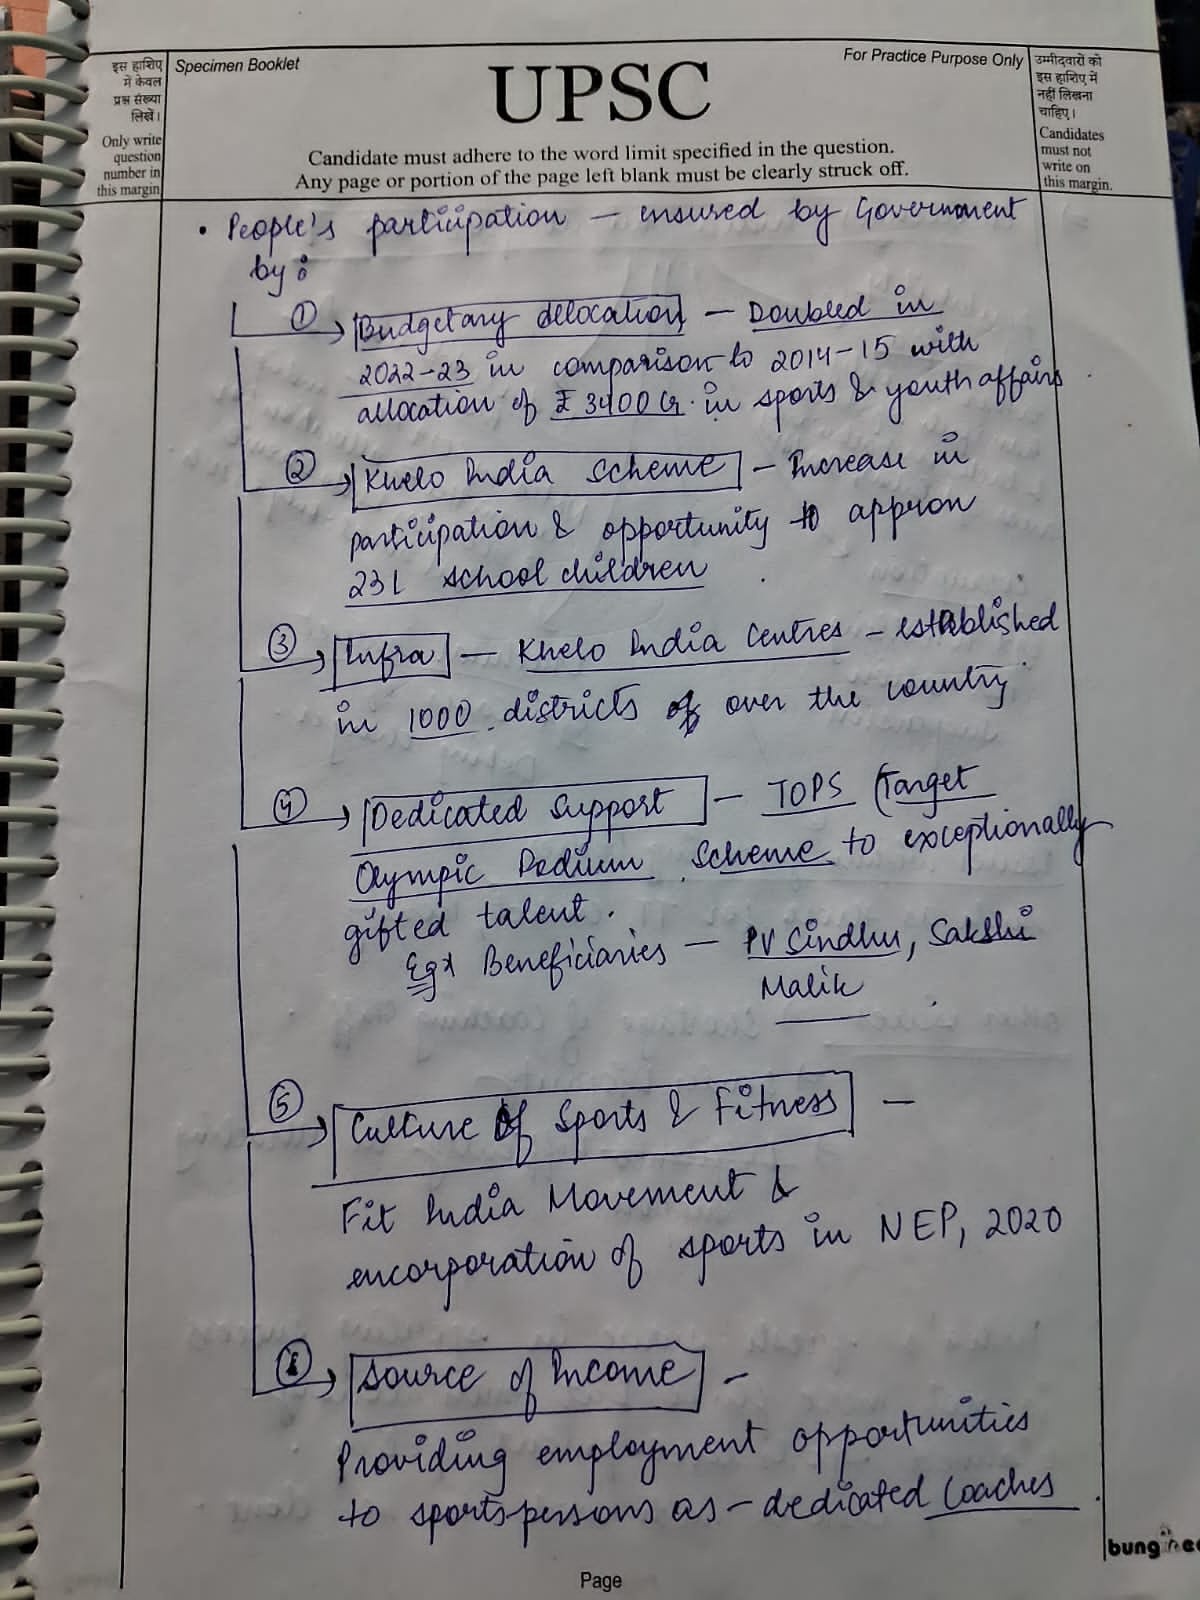 इस हाशिए
में केवल
प्रश्न संख्या
लिखें।
Only write
question
number in
this margin
Specimen Booklet
For Practice Purpose Only
UPSC
Candidate must adhere to the word limit specified in the question.
Any page or portion of the page left blank must be clearly struck off.
उम्मीदवारों को
इस हाशिए में
नहीं लिखना
चाहिए।
Candidates
must not
write on
this margin.
• People's participation – ensured by Government
by :
① Budgetary Allocation – Doubled in
2022-23 in comparison to 2014-15 with
allocation of ₹ 3400 Cr. in sports & youth affairs
② Khelo India Scheme – Increase in
participation & opportunity to approx
23L school children
③ Infra – Khelo India Centres – established
in 1000 districts over the country
④ Dedicated Support – TOPS (Target
Olympic Podium Scheme to exceptionally
gifted talent.
Eg: Beneficiaries – PV Sindhu, Sakshi
Malik
⑤ Culture of Sports & Fitness –
Fit India Movement &
encorporation of sports in NEP, 2020
⑥ Source of Income –
Providing employment opportunities
to sportspersons as – dedicated Coaches.
Page